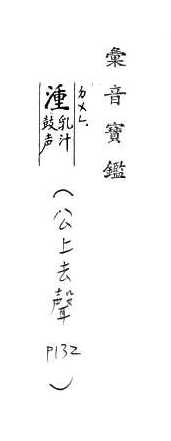 彙音寶鑑
ㄉㄨㄥˋ
湩 乳汁
鼓声
(公上去聲 P132)